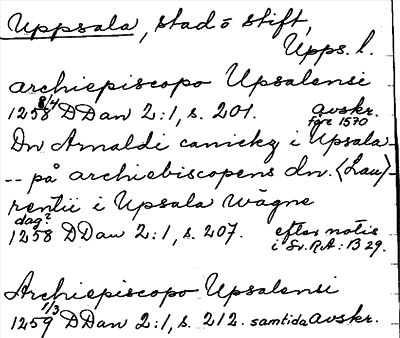 Uppsala, stad o stift,
Upps. l.
archiepiscopo Upsalensi
1258 8/4 DDan 2:1, s. 201. avskr. före 1570
Dn Arnaldi canicky i Upsala -
-- på archiebiscopens dn. <Lau)-
rentii i Upsala wägne
dag?
1258 DDan 2:1, s. 207. efter notis
i Sv. R.A: B 29.
Archiepiscopo Upsalensi
1259 1/3 DDan 2:1, s. 212. samtida avskr.